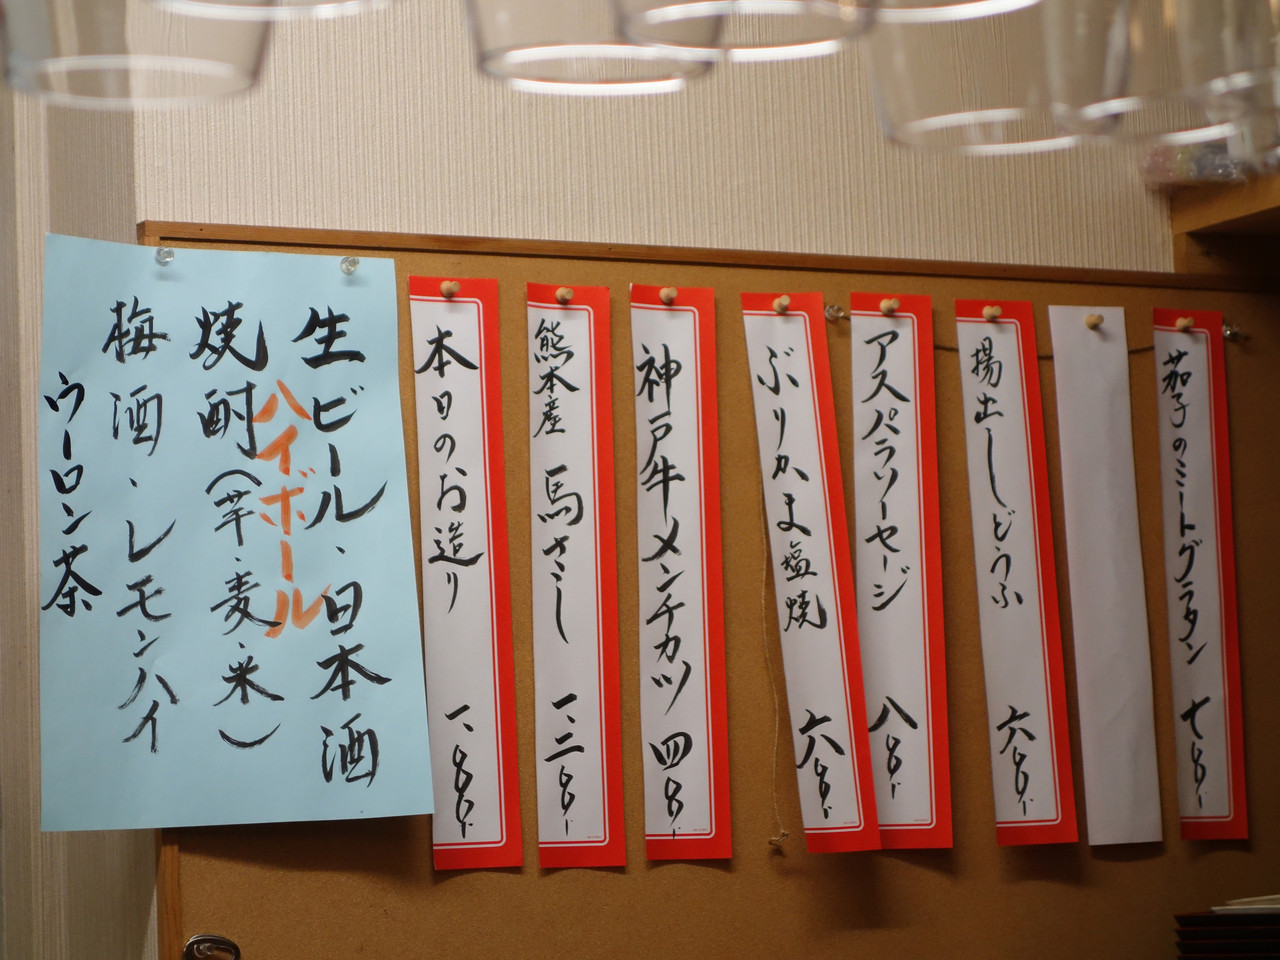 茄子のミートグラタン 七〇〇-
揚出しどうふ 六〇〇-
アスパラソーセージ 八〇〇-
ぶりかま塩焼 六〇〇-
神戸牛メンチカツ 四〇〇-
熊本産 馬さし 一、三〇〇-
本日のお造り 一、〇〇〇-
生ビール、日本酒
ハイボール
焼酎(芋、麦、米)
梅酒、レモンハイ
ウーロン茶